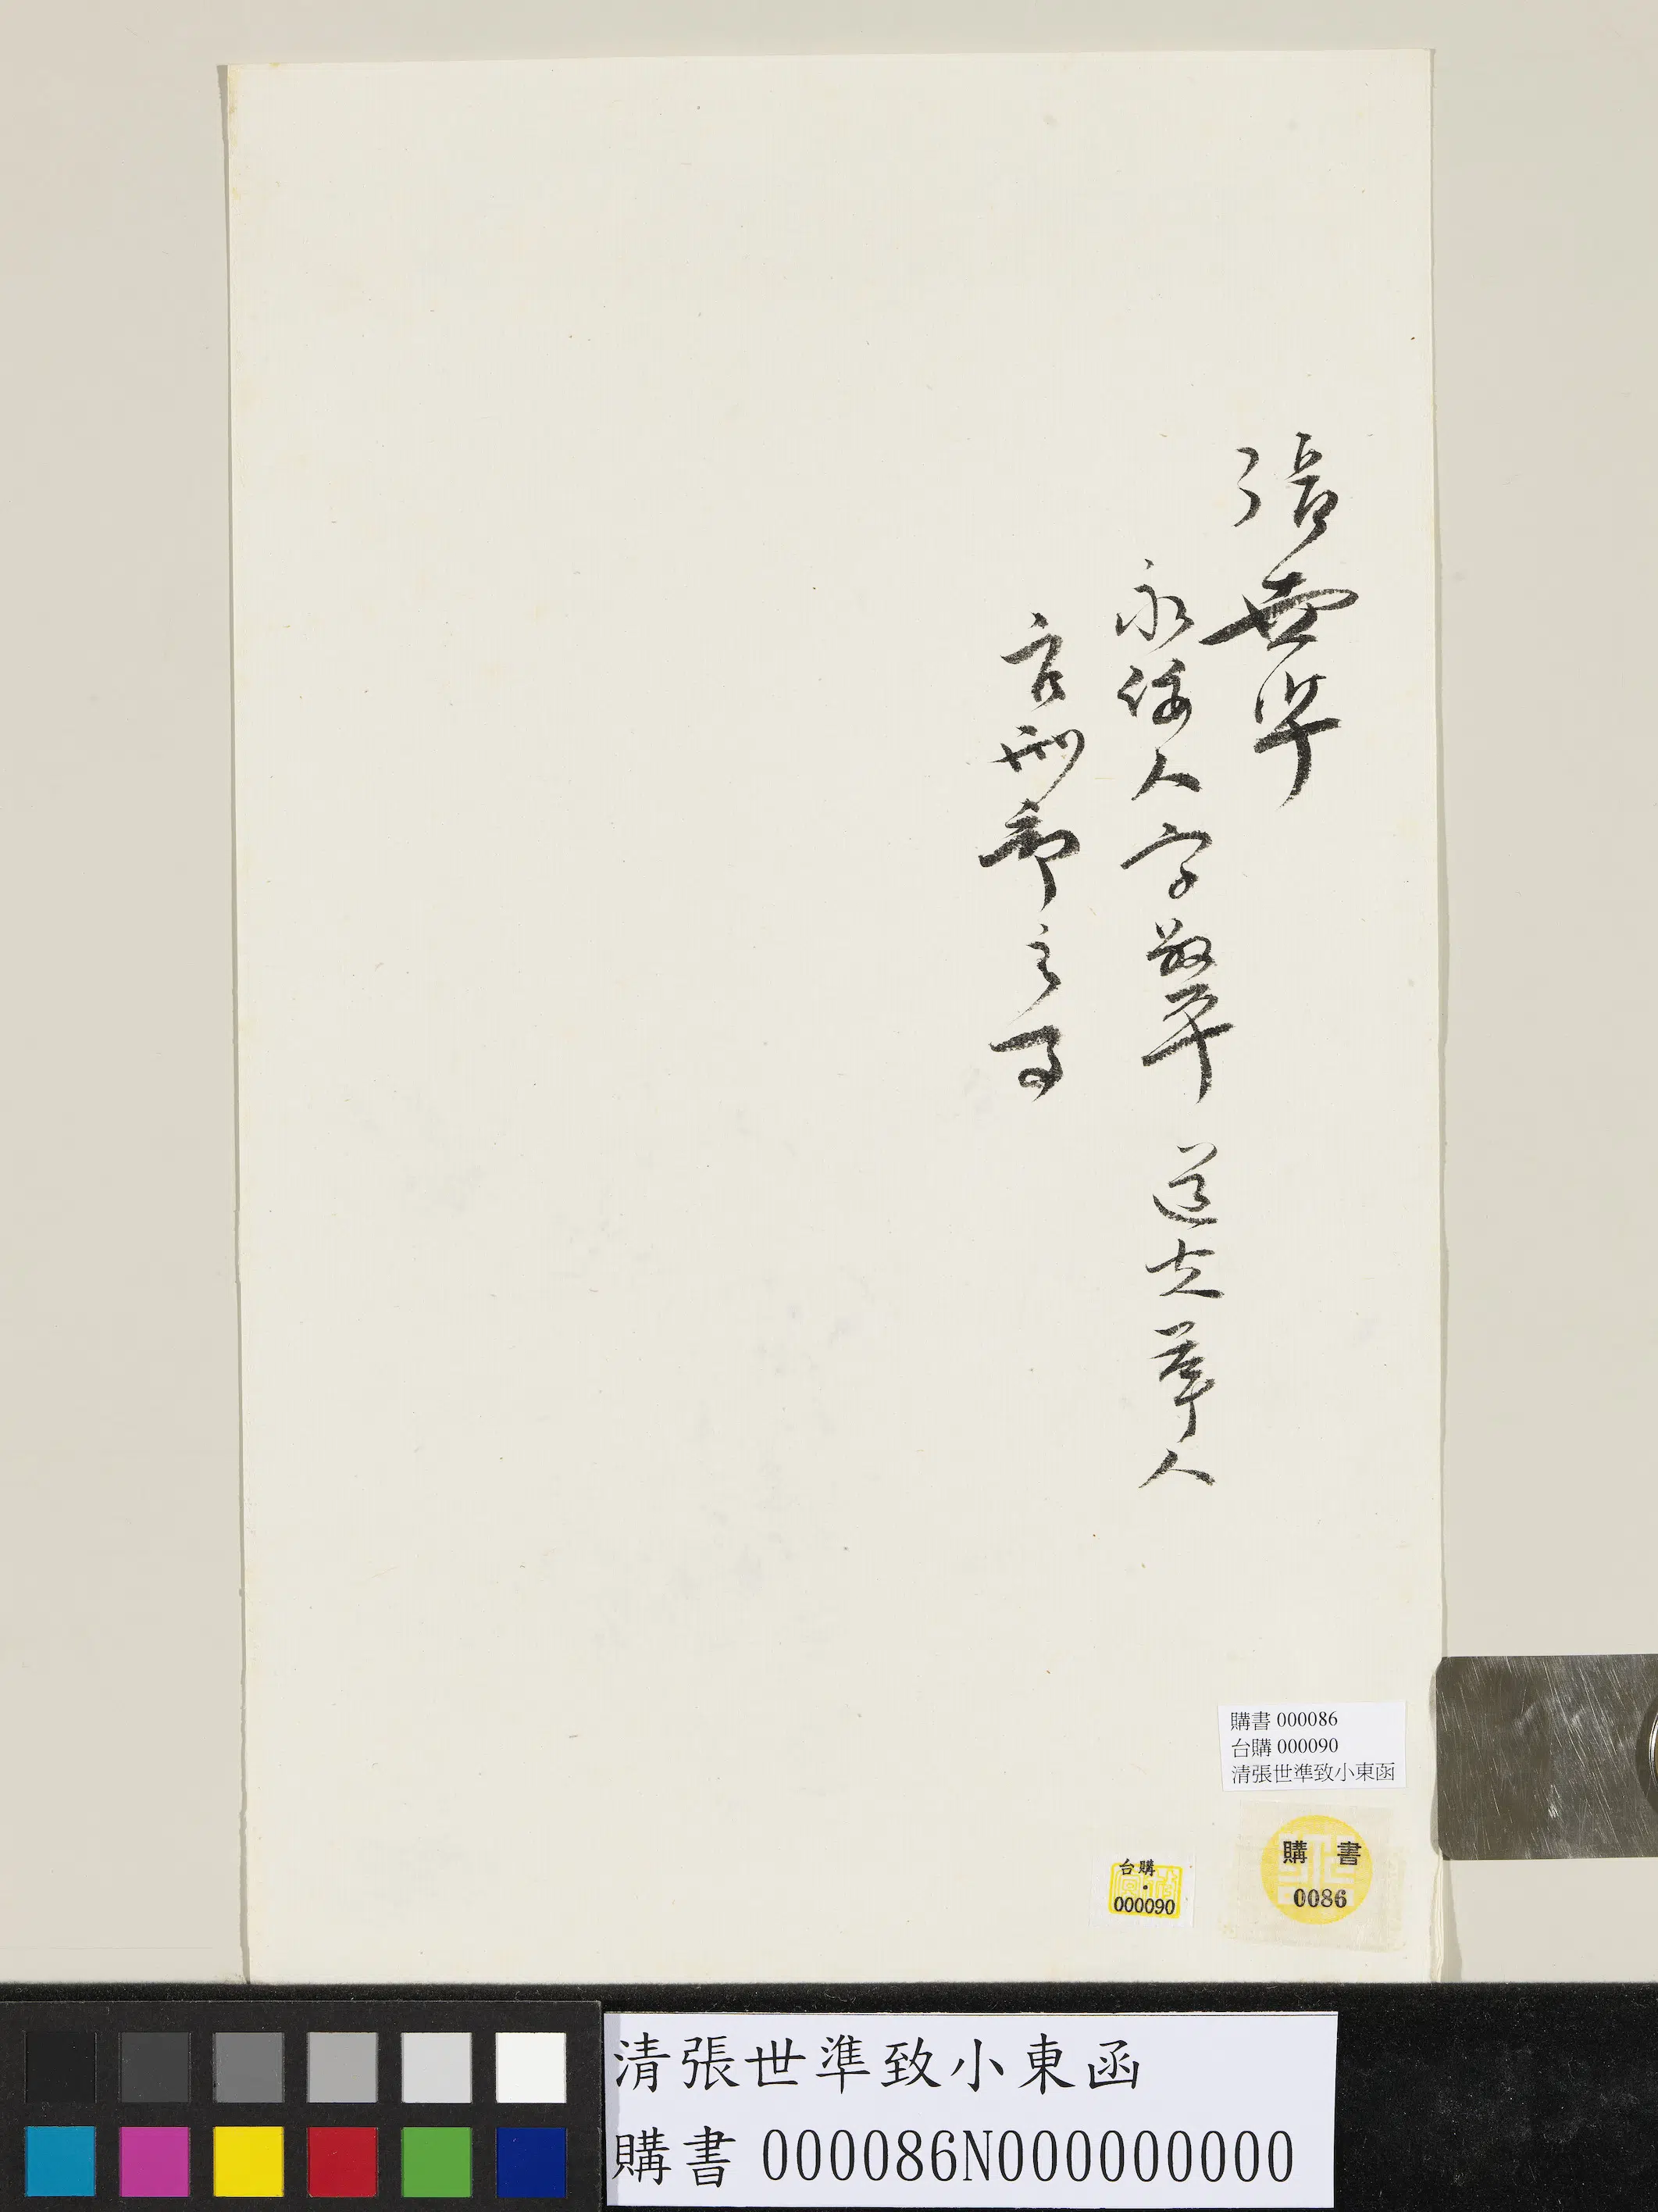 張世準
永綏人字叔平 道光舉人
官刑部主事
購書 000086
台購 000090
清張世準致小東函
購 書
0086
台購
000090
清張世準致小東函
購書 000086N000000000